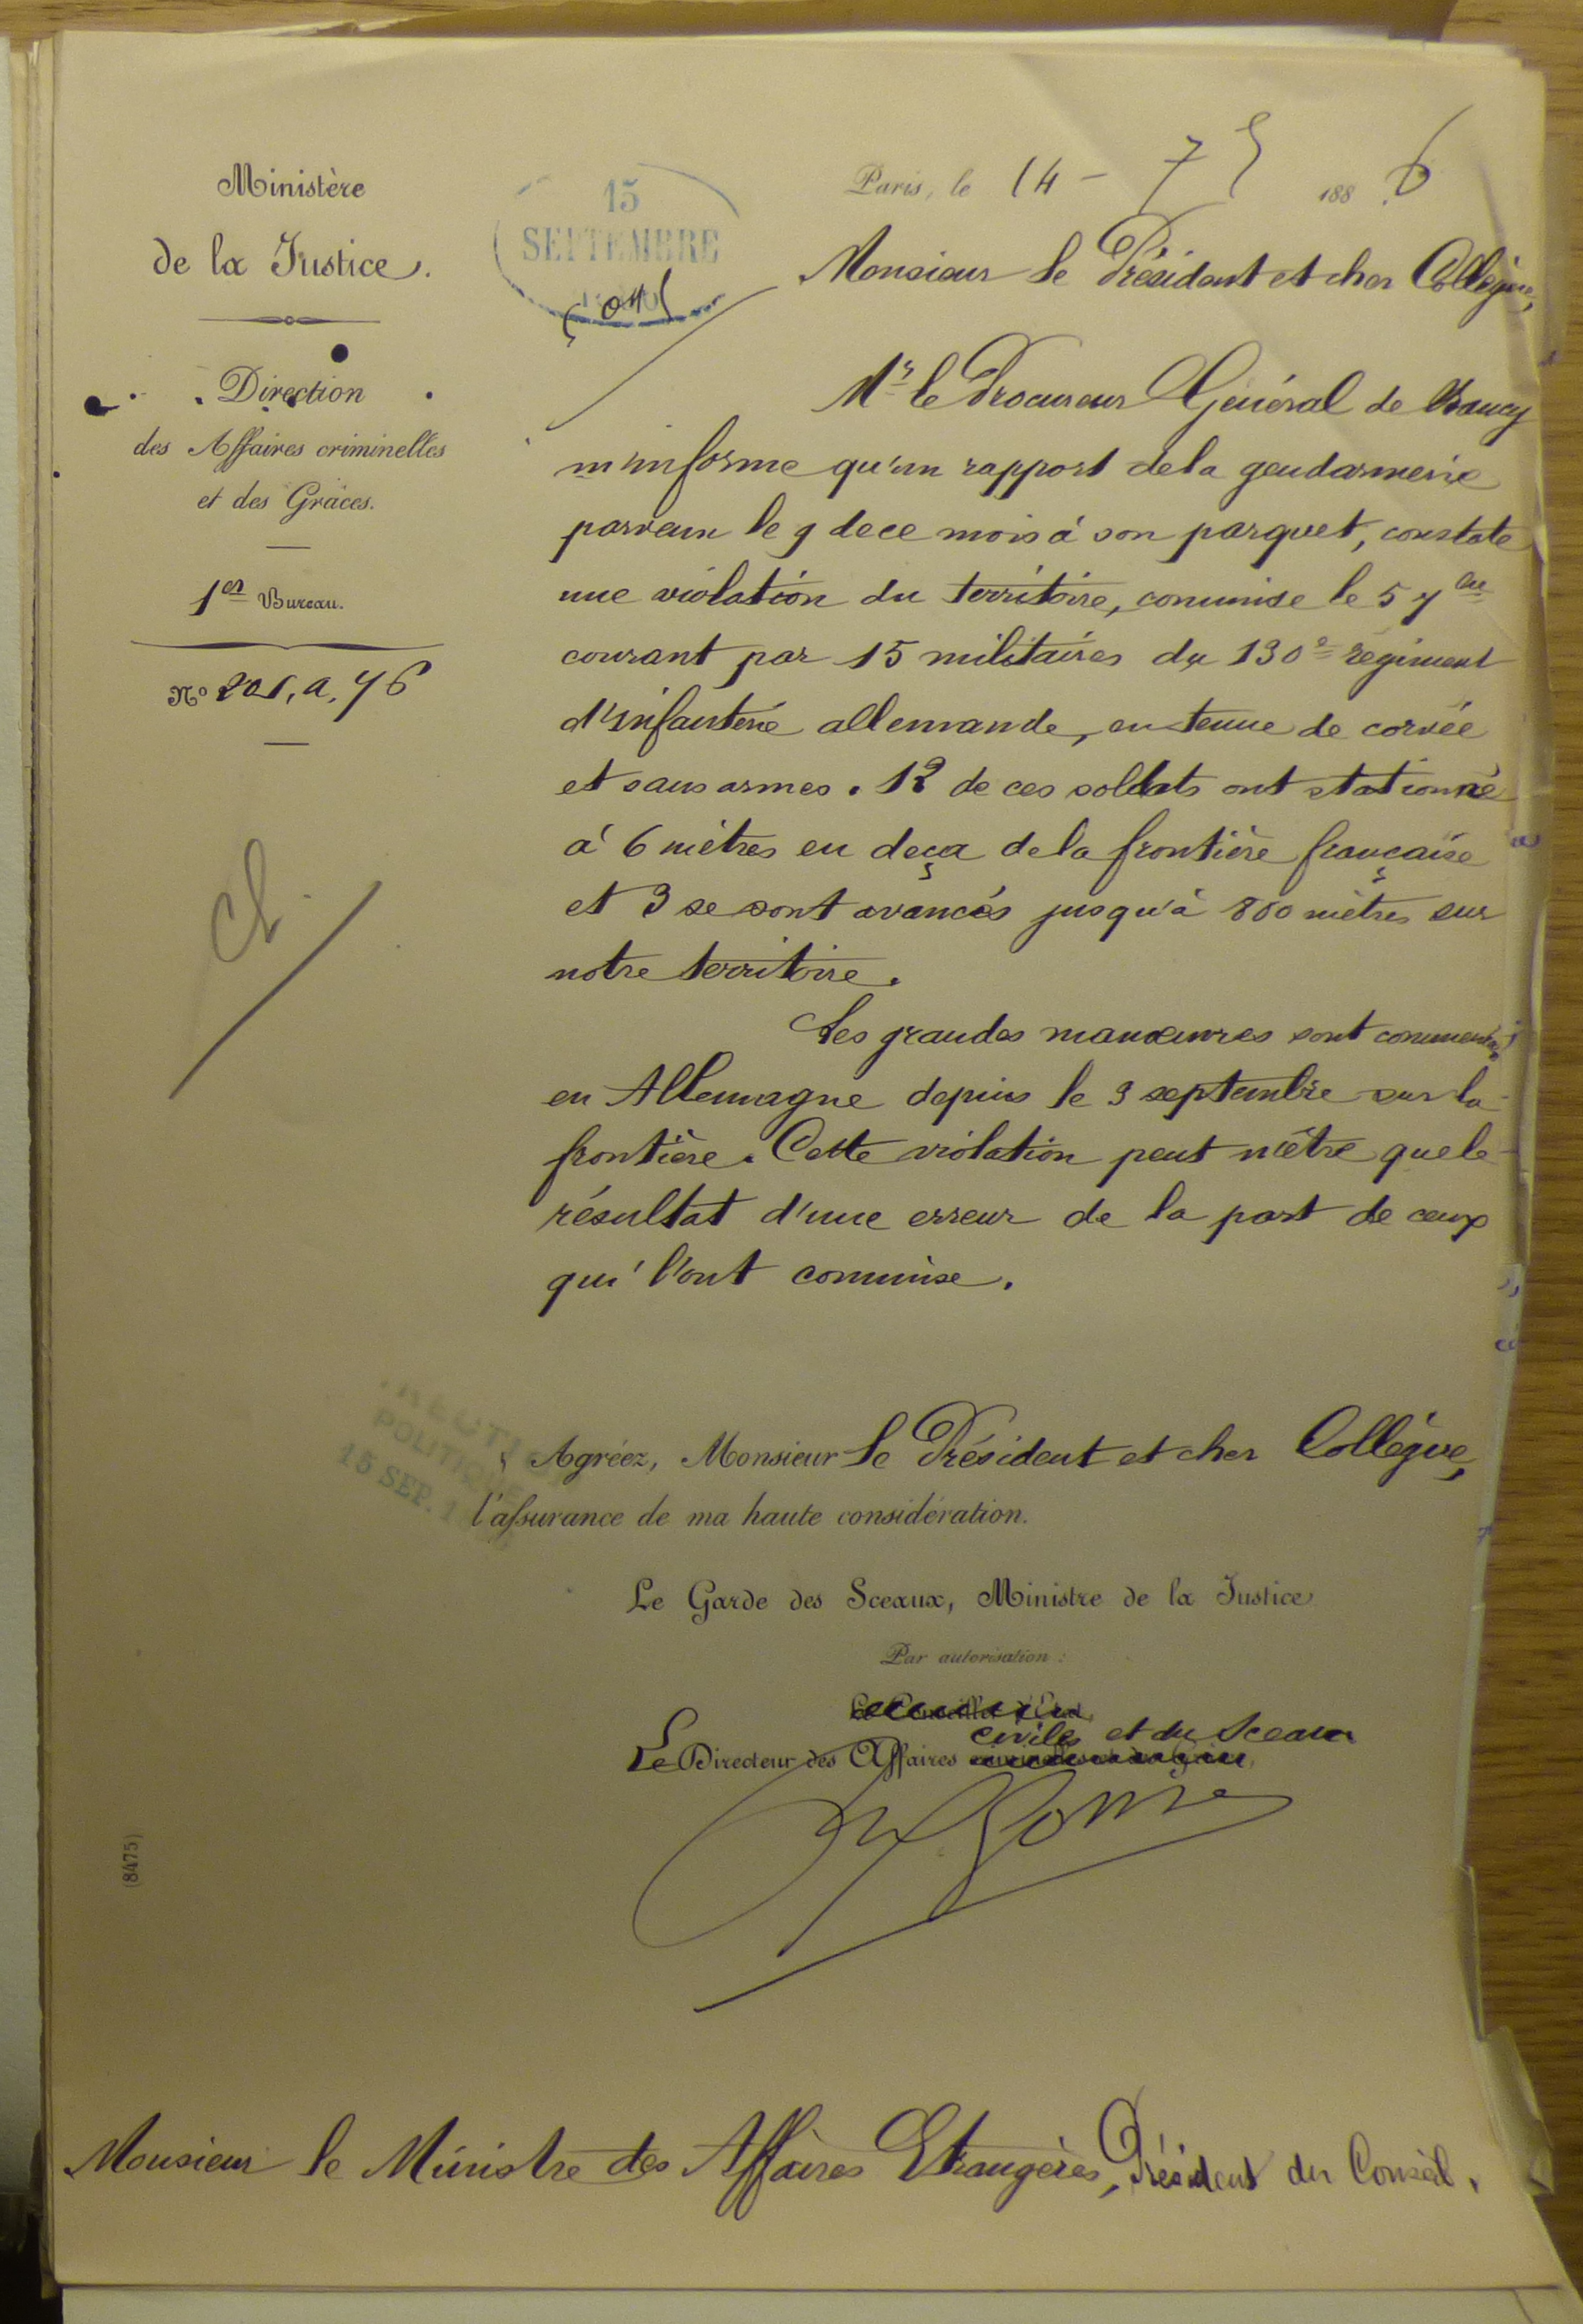 Ministère
de la Justice.
Direction
des Affaires criminelles
et des Grâces.
1er Bureau.
No 201, a, 76
15
SEPTEMBRE
Paris, le 14 - 7 188 6
Monsieur le Président et cher Collègue,
Mr le Procureur Général de Nancy
m'informe qu'un rapport de la gendarmerie
parvenu le 9 de ce mois à son parquet, constate
une violation du territoire, commise le 5 7bre
courant par 15 militaires du 130e régiment
d'infanterie allemande, en tenue de corvée
et sans armes. 12 de ces soldats ont stationné
à 6 mètres en deça de la frontière française
et 3 se sont avancés jusqu'à 800 mètres sur
notre territoire.
Les grandes manœuvres sont commencées
en Allemagne depuis le 3 septembre sur la
frontière. Cette violation peut n'être que le
résultat d'une erreur de la part de ceux
qui l'ont commise.
POLITIQUE
15 SEP.
Agréez, Monsieur le Président et cher Collègue,
l'assurance de ma haute considération.
Le Garde des Sceaux, Ministre de la Justice
Par autorisation :
civiles et du Sceau
Le Directeur des Affaires
(8475)
Monsieur le Ministre des Affaires Etrangères, Président du Conseil.